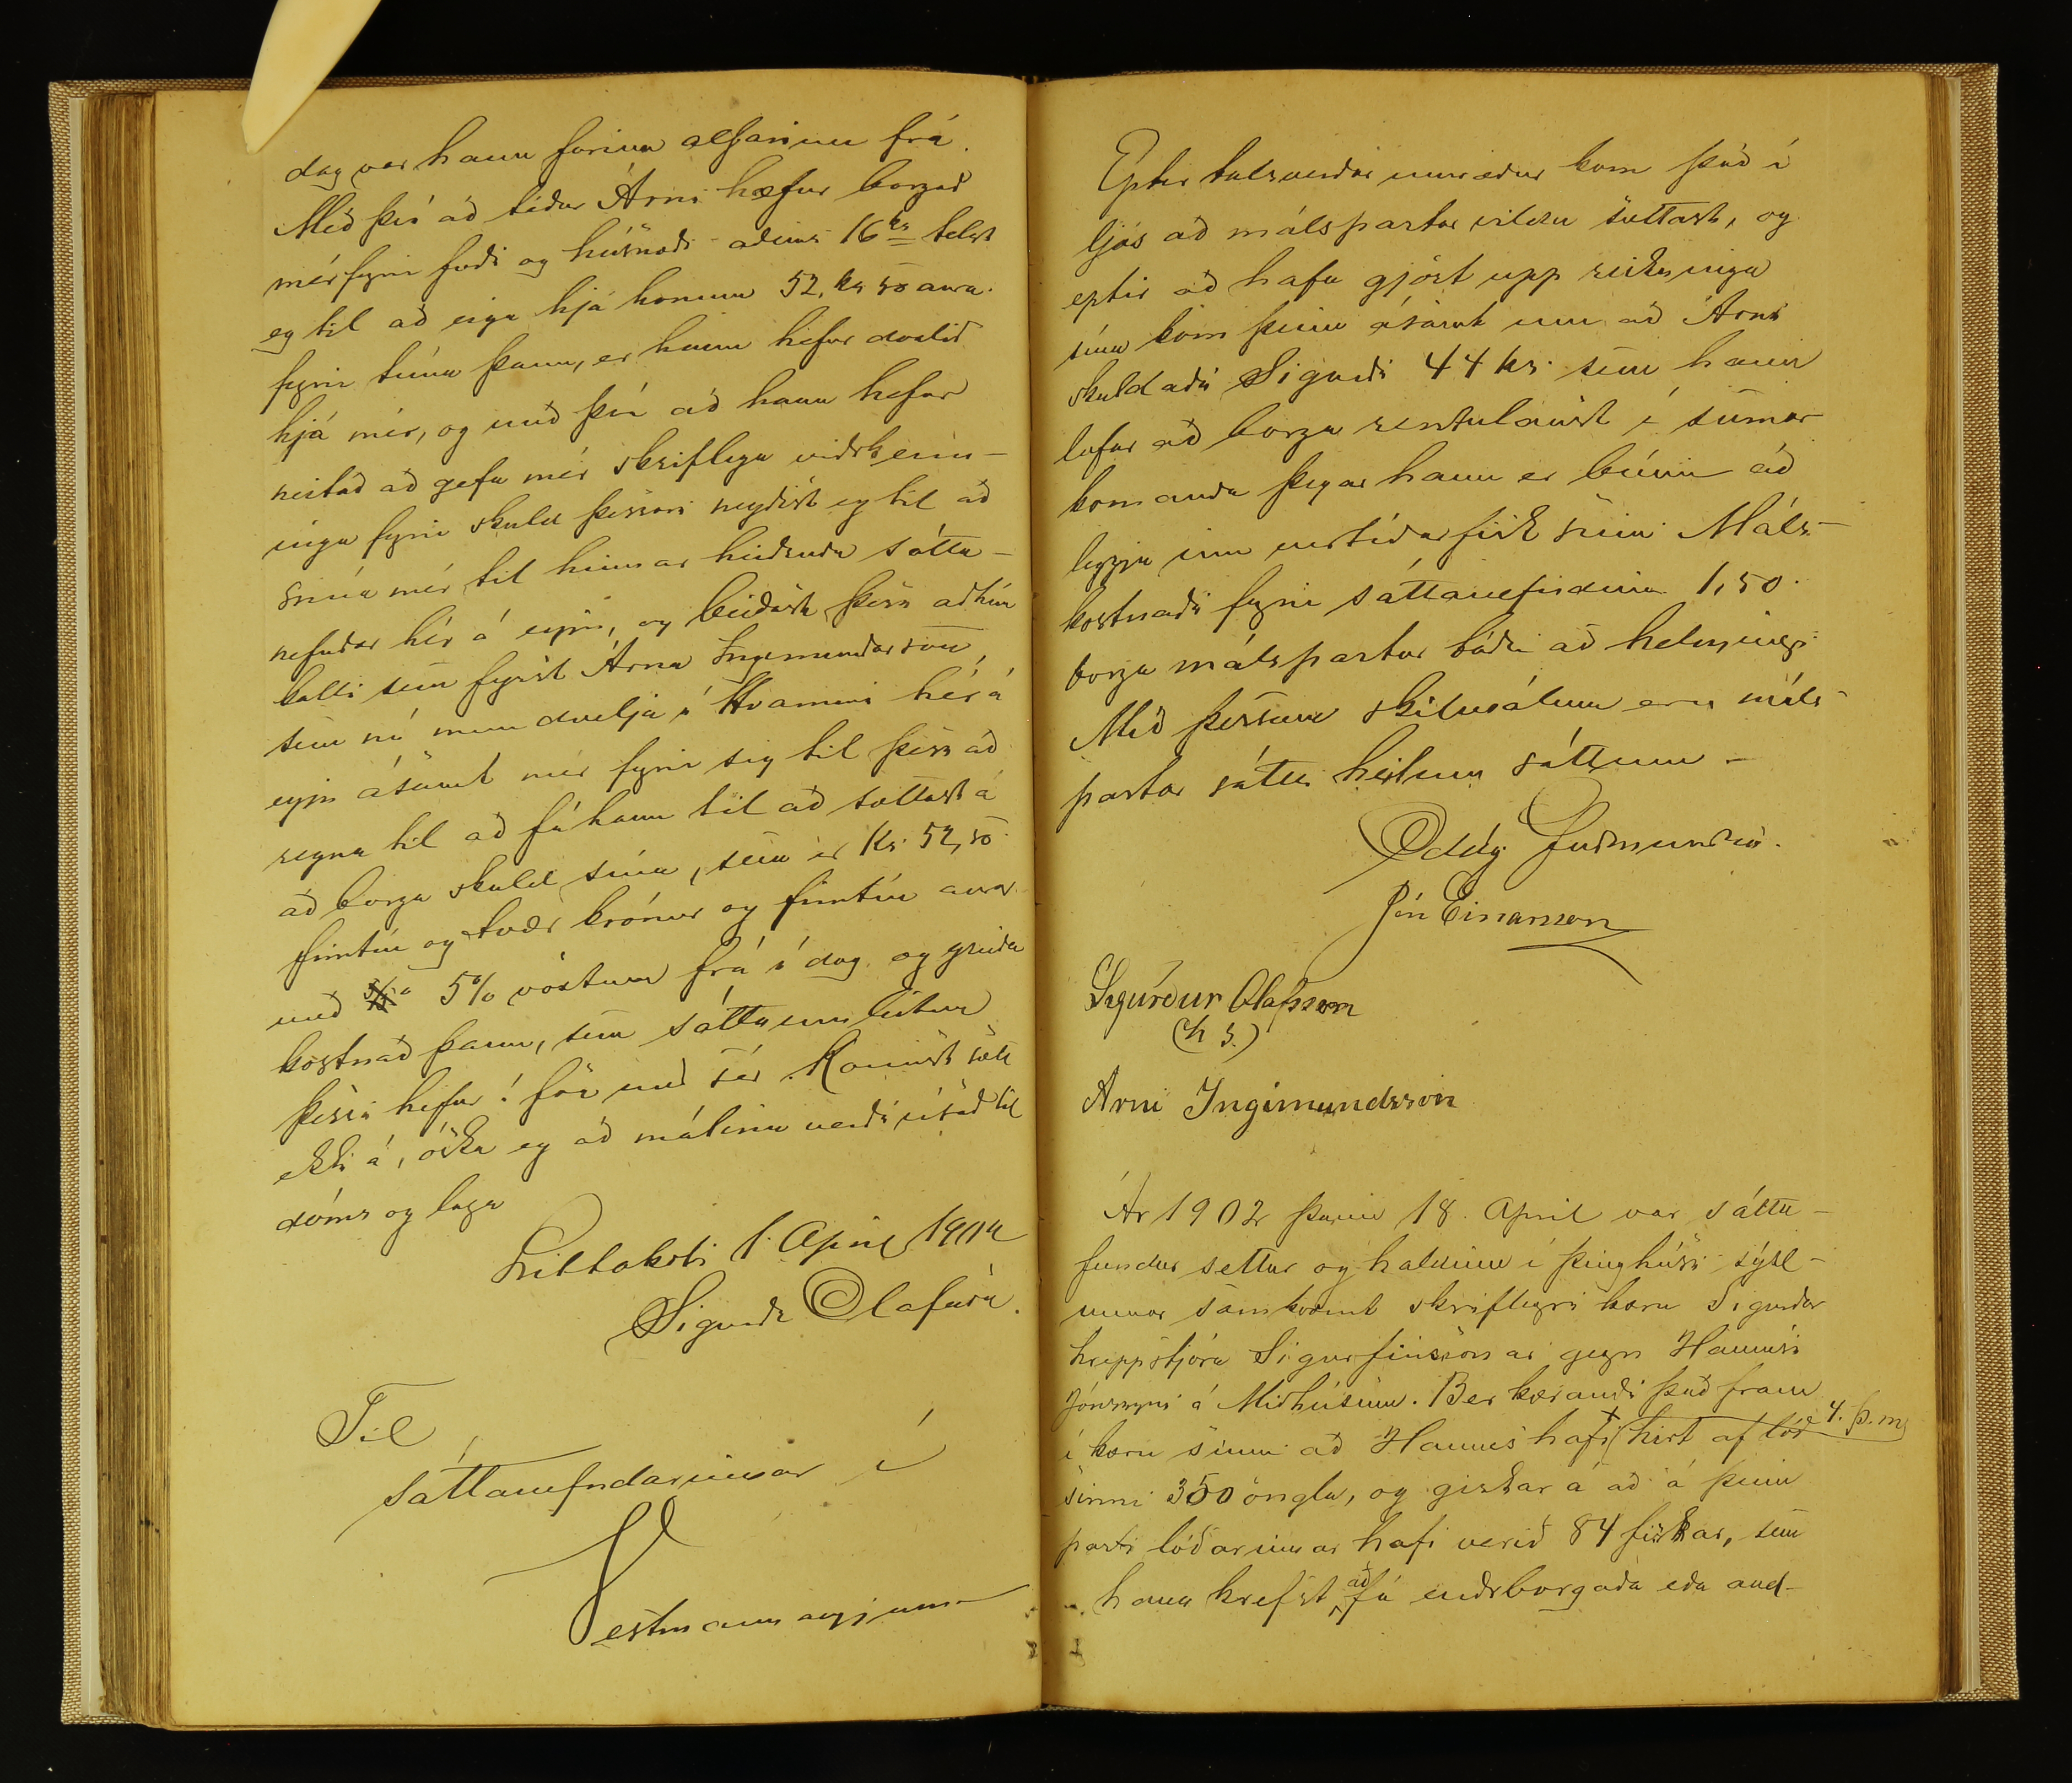 dag var hann farinn alfarinn frá.
Með því að téður Árni hefur borgað
mér fyrir fæði og húsnæði aðeins 16 kr telst
eg til að eiga hjá honum 52, kr 50 aura
fyrir tíma þann, er hann hefur dvalið
hjá mér, og með því að hann hefur
neitað að gefa mér skriflega viðrkenn-
ingu fyrir skuld þessari neyðist eg til að
snúa mér til hinnar heiðruðu sátta-
nefndar hér á eyju, og beiðast þess að hún
kalli sem fyrst Árna Ingimundarson,
sem nú mun dvelja í Hvammi hér á
eyju ásamt mér fyrir sig til þess að
reyna til að fá hann til að sættast á
að borga skuld sína, sem er Kr 52,50
fimtíu og tvær krónur og fimtíu aura
með 5% vöxtum frá í dag og greiða
kostnað þann, sem sáttaumleitun
þessi hefur í för með sér. Komist sætt
ekki á, óska eg að málinu verði vísað til
dóms og laga
Litlakoti 1. Apríl 1902
Sigurðr Olafsson.
Til
sáttanefndarinnar í
Vestmannaeyjum
Eptir talsverðar umræður kom það í
ljós að málspartar vildu sættast, og
eptir að hafa gjört upp reikninga
sína kom þeim ásamt um að Árni
skuldaði Sigurði 44 kr. sem hann
lofar að borga rentulaust í sumar
komanda þegar hann er búinn að
leggja inn vertíðarfisk sinn. Máls-
kostnaði fyrir sáttanefndinni 1,50.
borga málspartar báðir að helmingi
Með þessum skilmálum eru máls-
partar sáttir heilum sáttum -
Oddg Guðmundsen.
Jón Einarsson
Sigurður Olafsson
(h s.)
Arni Ingimundsson
Ár 1902 þann 18. April var sátta-
fundur settur og haldinn í þinghúsi sýsl-
unnar samkvæmt skriflegri kæru Sigurðar
hreppstjóra Sigurfinssonar gegn Hannesi
Jónssyni á Miðhúsum. Ber kærandi það fram
í kæru sinni að Hannes hafi hirt af lóð 4. þ. m
sinni 350 öngla, og giskar á að á þeim
parti lóðarinnar hafi verið 84 fiskar, sem
hann krefst að fá endrborgaða eða and-